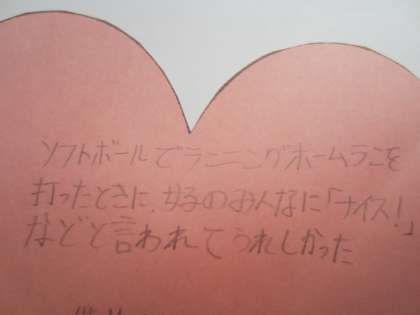 ソフトボールでランニングホームランを
打ったときに、女子のみんなに「ナイス!」
などと言われてうれしかった